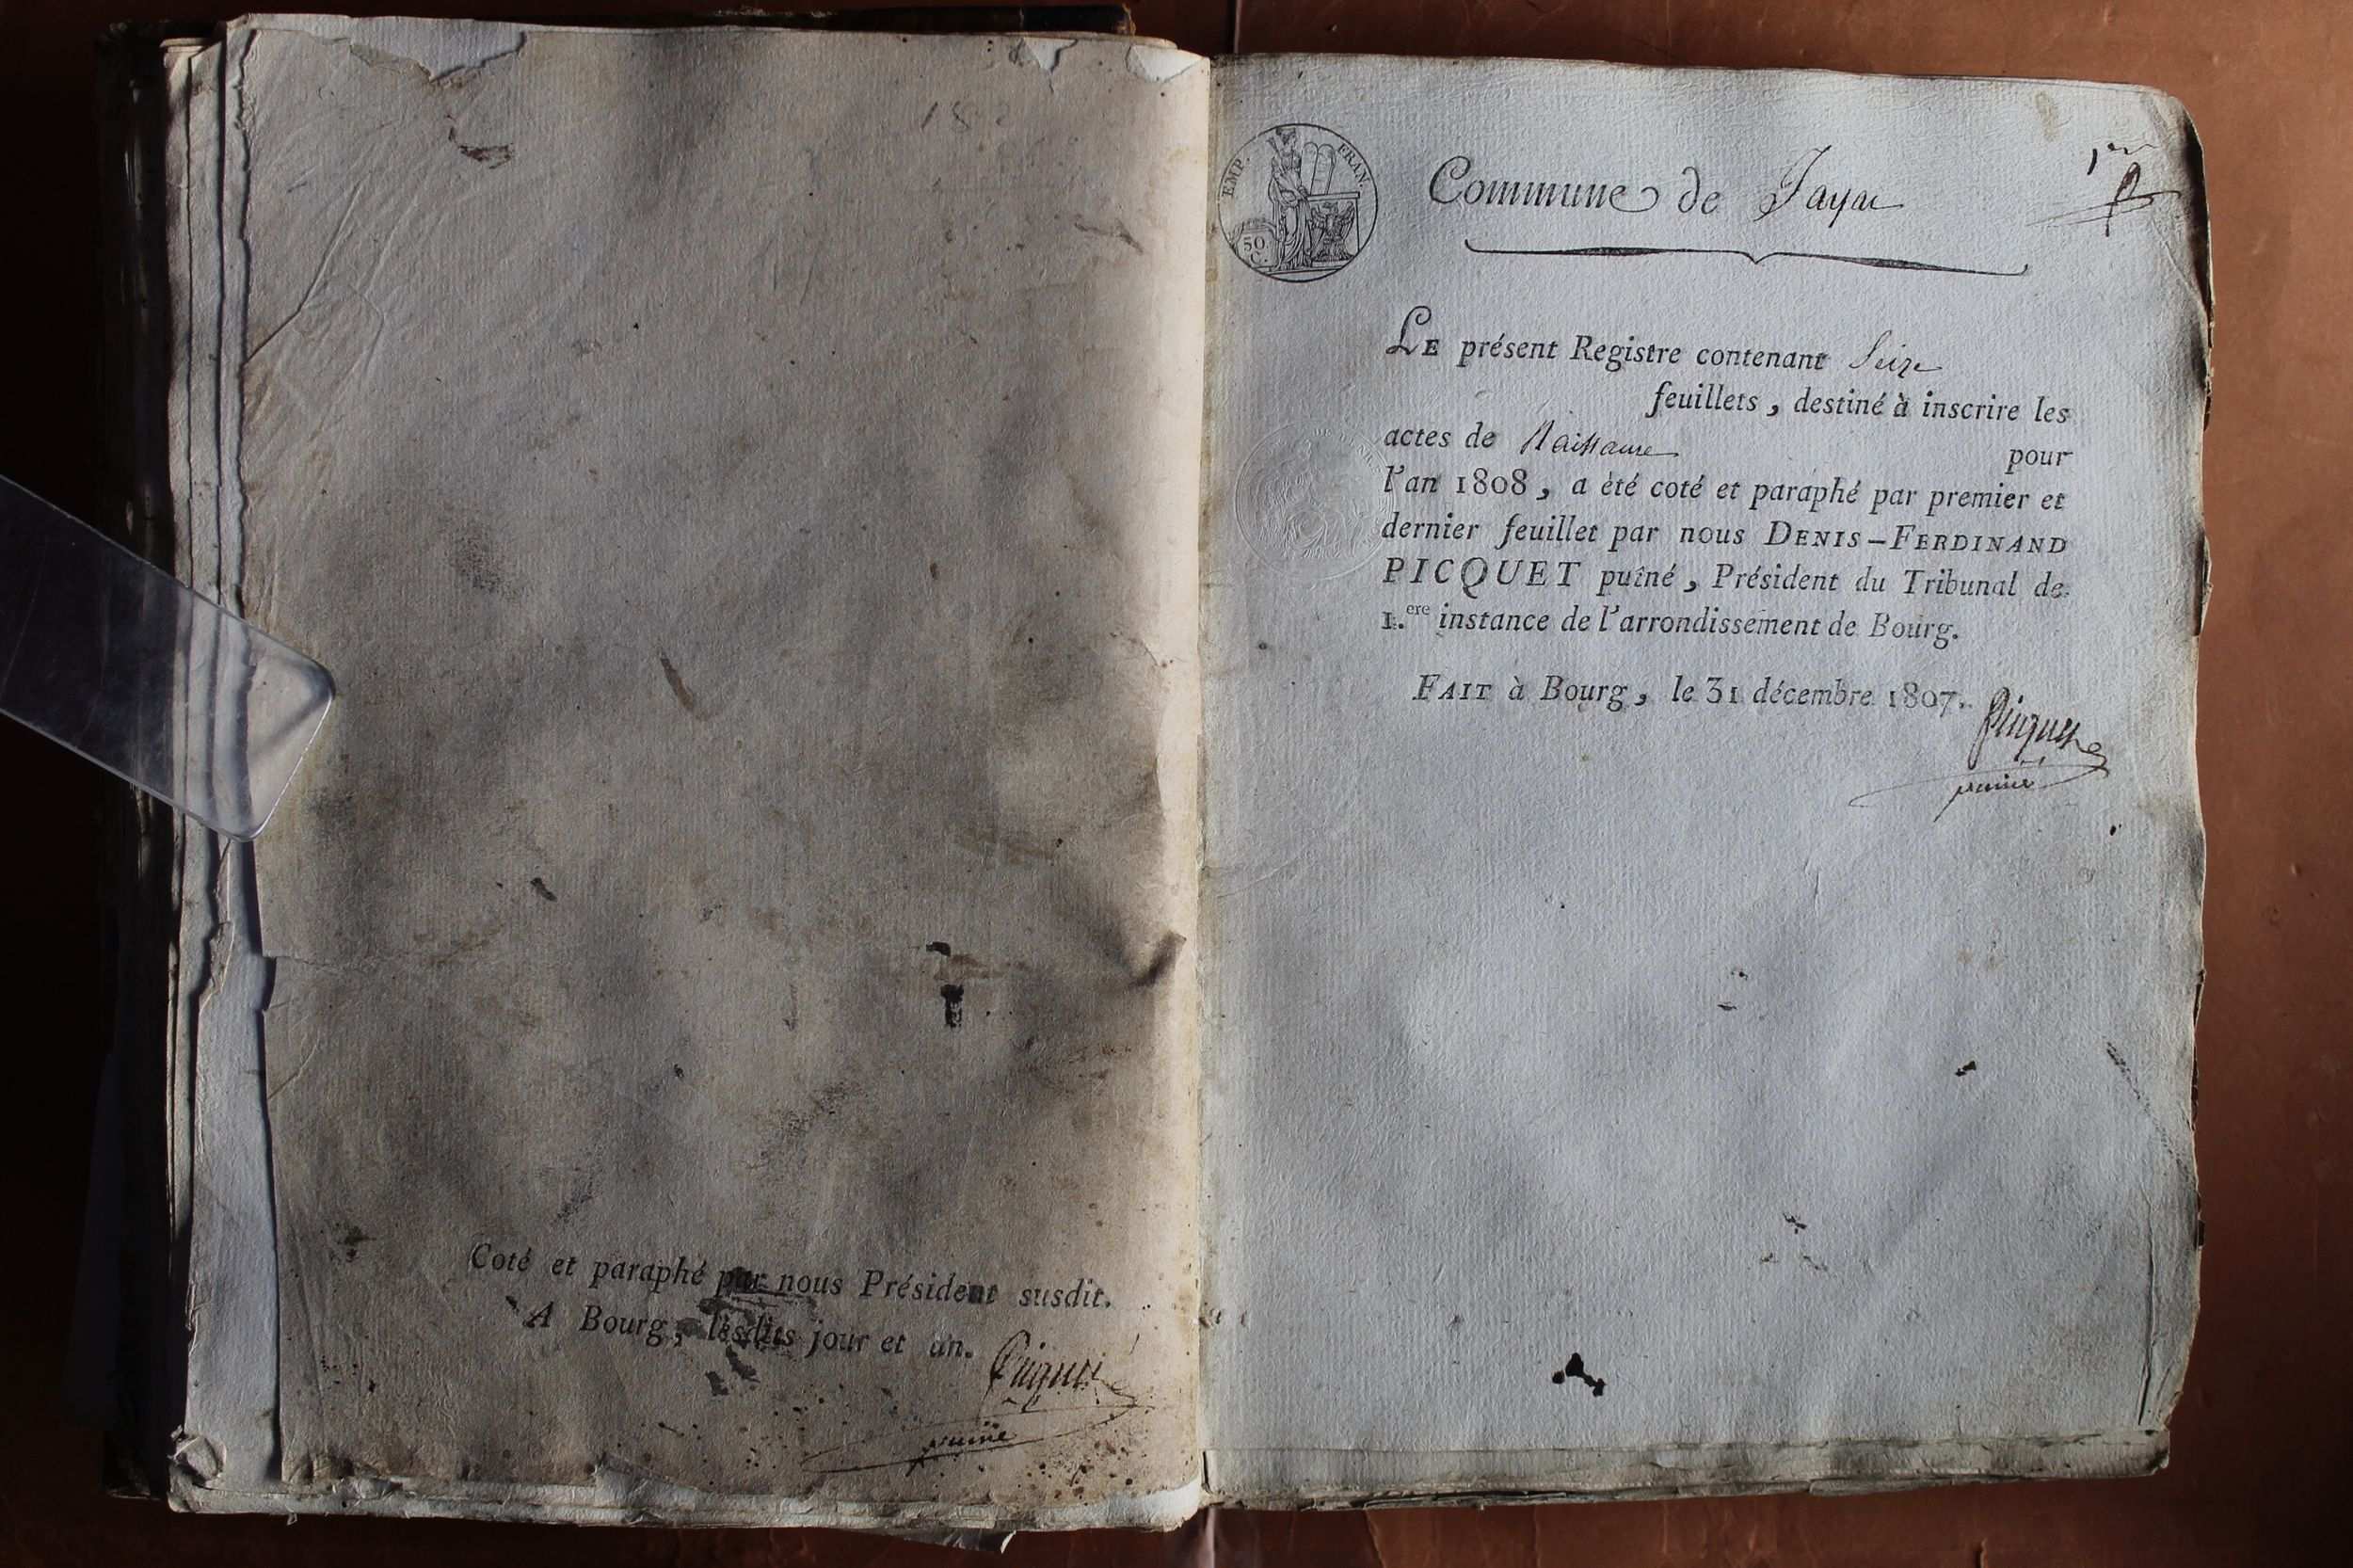 Coté et paraphé par nous Président susdit.
A Bourg, lesdits jour et an.
Picquet
puiné
EMP. FRAN.
50
C.
1er
Commune de Jayat
LE présent Registre contenant Seize
feuillets, destiné à inscrire les
actes de Naissance pour
l'an 1808, a été coté et paraphé par premier et
dernier feuillet par nous DENIS-FERDINAND
PICQUET puîné, Président du Tribunal de
1.ere instance de l'arrondissement de Bourg.
FAIT à Bourg, le 31 décembre 1807.
Picquet
puiné